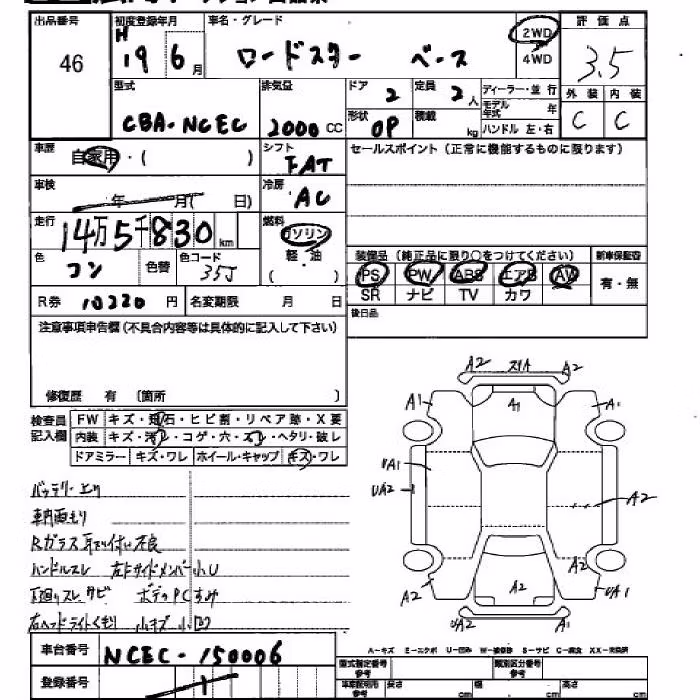 出品番号 初度登録年月 車名・グレード 2WD 評価点
46 H 19 6月 ロードスター ベース 4WD 3.5
型式 排気量 ドア 2 定員 2人 ディーラー・並行 外装 内装
モデル年式 年
CBA・NCEC 2000CC 形状 OP 積載 kg ハンドル 左・右 C C
車歴 自家用・( ) シフト FAT セールスポイント(正常に機能するものに限ります)
車検 年 月( 日) 冷房 AC
走行 14万5千830km 燃料 ガソリン
装備品(純正品に限り○をつけてください) 新車保証書
色 コン 色替 色コード 35J 軽・油 ( )
PS PW ABS エアB AW 有・無
SR ナビ TV カワ
R券 10220円 名変期限 月 日 後日品
注意事項申告欄(不具合内容等は具体的に記入して下さい)
修復歴 有 〔箇所 〕
検査員記入欄 FW キズ・飛石・ヒビ割・リペア跡・X要
内装 キズ・汚レ・コゲ・穴・スレ・ヘタリ・破レ
ドアミラー キズ・ワレ ホイール・キャップ キズ・ワレ
A2 スリA A2
A1 A1 A1
UA1
UA2 A2
A2 A2 A2 UA1
UA2 A2
バッテリー上り
Rガラス 不良
ハンドルスレ 左F サイドメンバー小U
下廻りスレ サビ ボデーPCすみ
右ヘッドライトくもり 小キズ 小凹
車台番号 NCEC-150006
A-キズ E-エクボ U-凹み W-補修跡 S-サビ C-腐食 XX-交換済
登録番号 型式指定番号参考 類別区分番号参考
車庫証明用参考 長さ cm 幅 cm 高さ cm